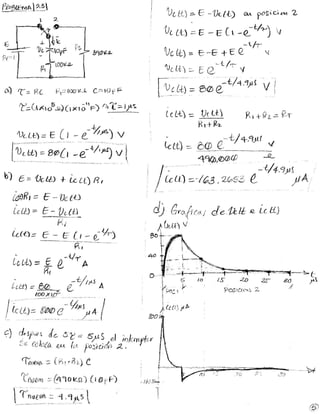 Problema 23
1 2
E
80V
Vc 10pF
R1 100kΩ
R2 390kΩ
a) τ = RC R1=100kΩ C=10pF
τ=(1x10^5 Ω)(1x10^-11 F) => τ=1µs
Vc(t) = E (1 - e^-t/1µs) V
Vc(t) = 80(1 - e^-t/1µs) V
b) E = Vc(t) + ic(t) R1
ic(t)R1 = E - Vc(t)
ic(t) = E - Vc(t)
R1
ic(t) = E - E (1 - e^-t/τ)
R1
ic(t) = E e^-t/τ A
R1
ic(t) = 80 e^-t/1µs A
100x10^3
ic(t) = 800 e^-t/1µs µA
c) después de 5τ = 5µS el interruptor
se coloca en la posición 2.
τnueva = (R1+R2) C
τnueva = (490kΩ)(10pF)
τnueva = 4.9µs
Vc(t) = E - Vc(t) en posición 2
Vc(t) = E - E (1 - e^-t/τ) V
Vc(t) = E - E + E e^-t/τ V
Vc(t) = E e^-t/τ V
Vc(t) = 80 e^-t/4.9µs V
ic(t) = Vc(t) R1 + R2 = RT
R1+R2
ic(t) = 80 e^-t/4.9µs V
490,000 Ω
ic(t) = -163.2653 e^-t/4.9µs µA
d) Graficas de Vc(t) e ic(t)
Vc(t) V
80
40
0 5 10 15 20 25 30 t µS
Pos. 1 Posición 2
ic(t) µA
800